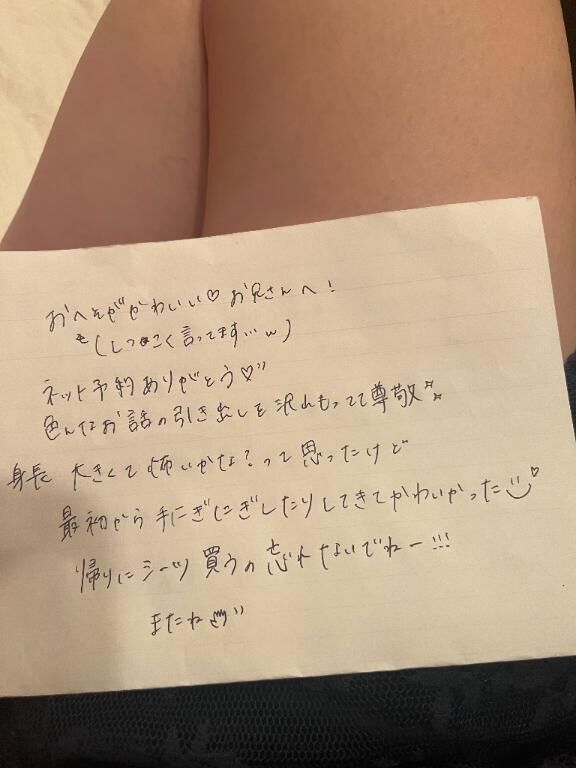 おへそがかわいい♡ お兄さんへ!
(しつこく言ってます…w)
ネット予約ありがとう♡
色んなお話の引き出しを沢山もってて尊敬
身長 大きくて怖いかな?って思ったけど
最初から手にぎにぎしたりしてきてかわいかった
帰りにシーツ買うの忘れないでねー!!!
またね